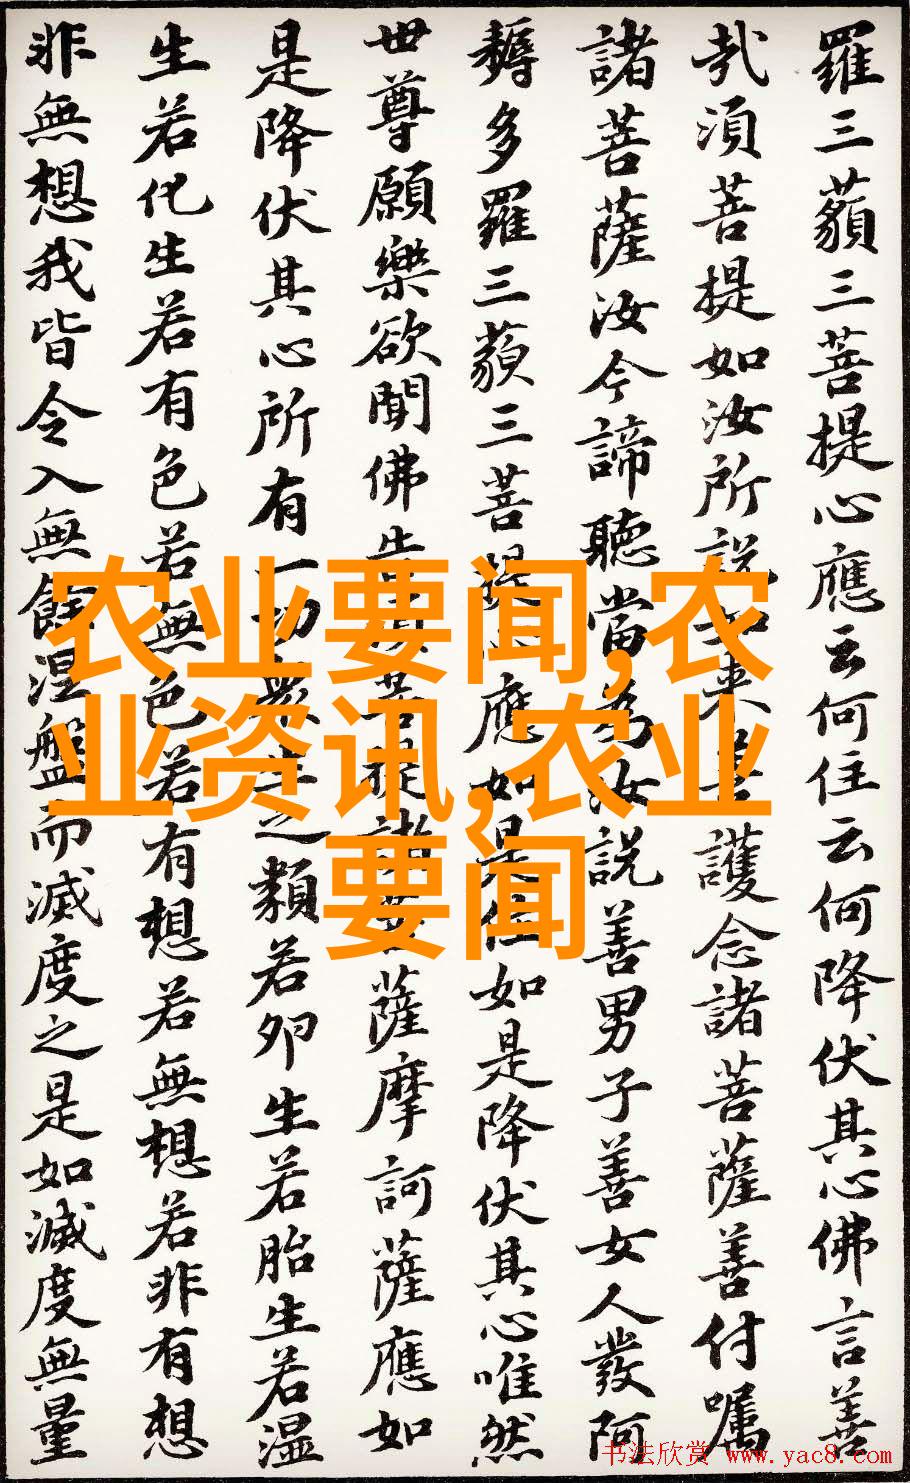 羅三藐三菩提心應云何住云何降伏其心佛言善
哉須菩提如汝所說如來善護念諸菩薩善付囑
諸菩薩汝今諦聽當為汝說善男子善女人發阿
耨多羅三藐三菩提心應如是住如是降伏其心唯然
世尊願樂欲聞佛告須菩提諸菩薩摩訶薩應如
是降伏其心所有一切眾生之類若卵生若胎生若湿
生若化生若有色若無色若有想若無想若非有想
非無想我皆令入無餘涅盤而滅度之是如滅度無量
农业要闻,农
业资讯,农业
要闻
书法欣赏 www.yac8.com